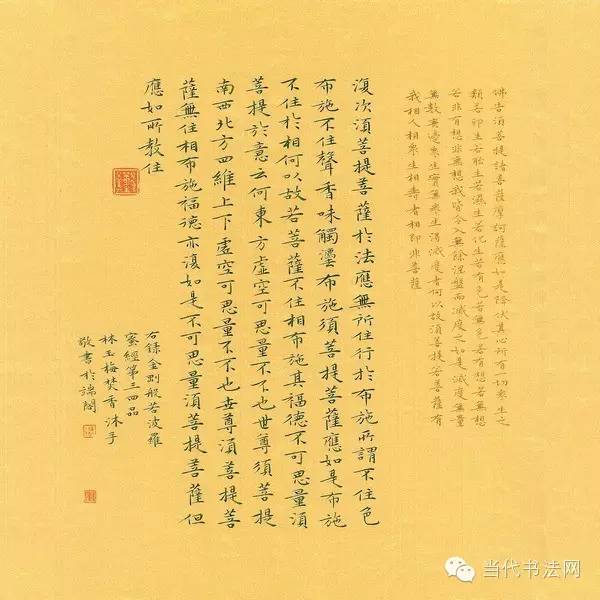 佛告須菩提諸菩薩摩訶薩應如是降伏其心所有一切衆生之
類若卵生若胎生若濕生若化生若有色若無色若有想若無想
若非有想非無想我皆令入無餘涅槃而滅度之如是滅度無量
無數無邊衆生實無衆生得滅度者何以故須菩提若菩薩有
我相人相衆生相壽者相即非菩薩
復次須菩提菩薩於法應無所住行於布施所謂不住色
布施不住聲香味觸灋布施須菩提菩薩應如是布施
不住於相何以故若菩薩不住相布施其福德不可思量須
菩提於意云何東方虛空可思量不不也世尊須菩提
南西北方四維上下虛空可思量不不也世尊須菩提菩
薩無住相布施福德亦復如是不可思量須菩提菩薩但
應如所教住
右錄金剛般若波羅
蜜經第三四品
林玉梅焚香沐手
敬書於端閣
当代书法网